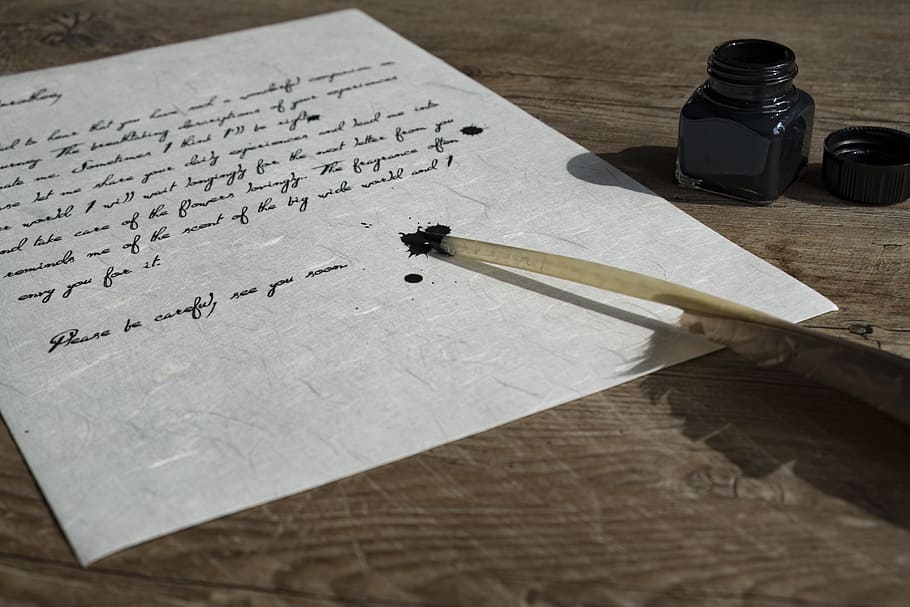 to have that you have a wonderful companion on
The breathtaking descriptions of your experiences
me. Sometimes I think I'll be right
let me share your daily experiences and lead me into
world I will wait longingly for the next letter from you
and take care of the flowers lovingly. The fragrance often
reminds me of the scent of the big wide world and I
envy you for it.
Pease be careful, see you soon.